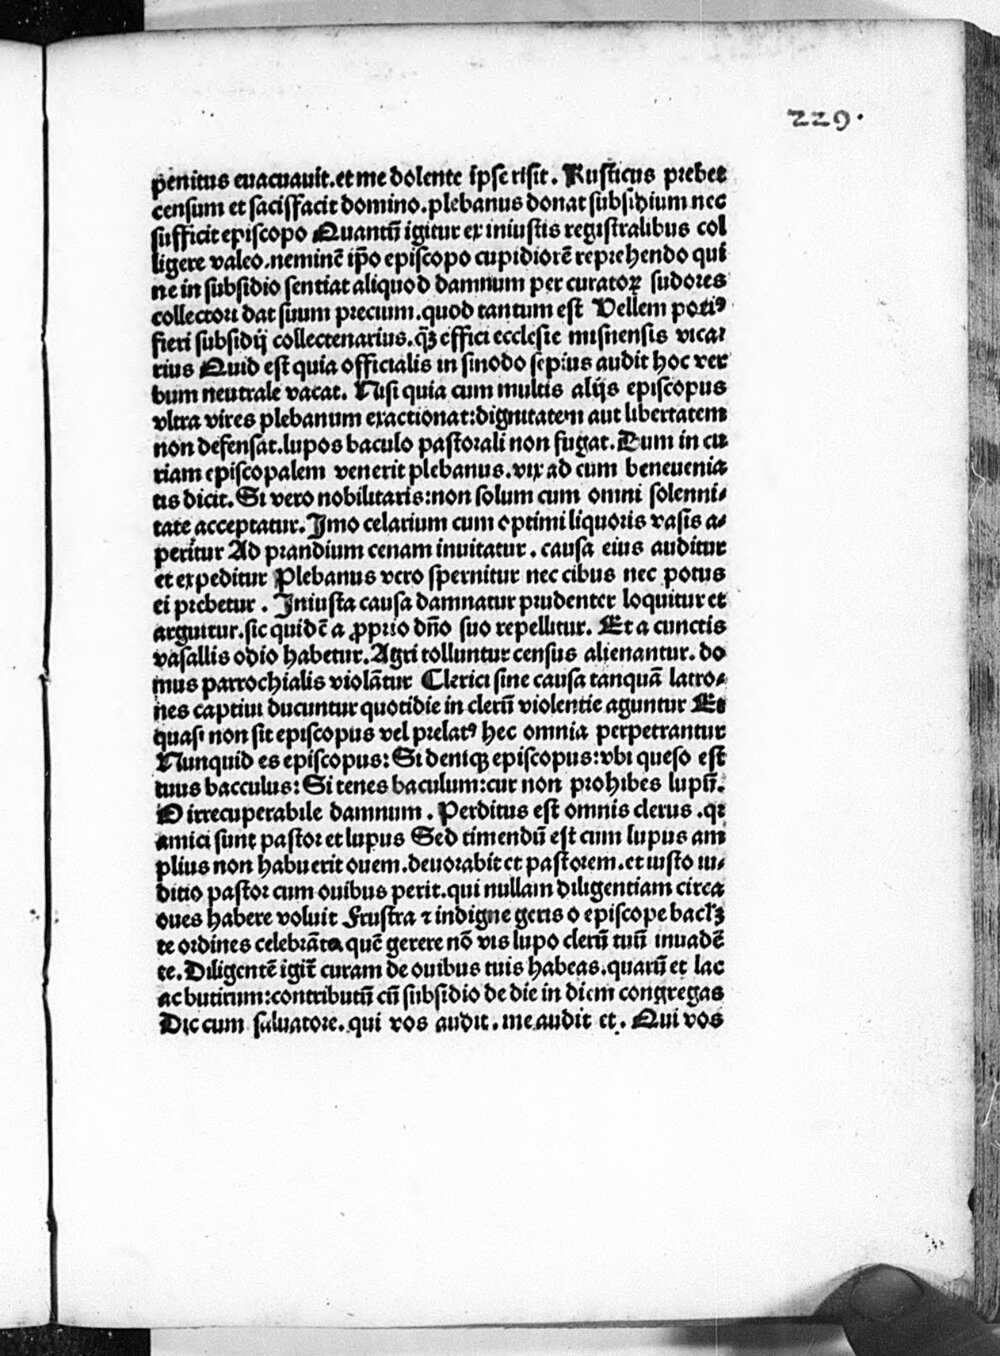 229.
penitus euacuauit.et me dolente ipse risit. Rusticus prebet
censum et sacisfacit domino.plebanus donat subsidium nec
sufficit episcopo Quantū igitur ex iniustis registralibus col
ligere valeo.neminē ip̄o episcopo cupidiorē reprehendo qui
ne in subsidio sentiat aliquod damnum per curatoꝝ sudores
collectori dat suum precium.quod tantum est Vellem potiꝰ
fieri subsidij collectenarius.qꝫ effici ecclesie misnensis vicar
rius Quid est quia officialis in sinodo sepius audit hoc ver
bum neutrale vacat. Nisi quia cum multis alijs episcopus
vltra vires plebanum exactionat:dignitatem aut libertatem
non defensat.lupos baculo pastorali non fugat.Dum in cu
riam episcopalem venerit plebanus.vix ad eum beneuenia
tis dicit.Si vero nobilitaris:non solum cum omni solenni⸗
tate acceptatur.Imo celarium cum optimi liquoris vasis a⸗
peritur Ad prandium cenam inuitatur.causa eius auditur
et expeditur Plebanus vero spernitur nec cibus nec potus
ei prebetur. Iniusta causa damnatur prudenter loquitur et
arguitur.sic quidē a ꝓprio dn̄o suo repellitur. Et a cunctis
vasallis odio habetur.Agri tolluntur census alienantur.do
mus parrochialis violātur Clerici sine causa tanquā latro⸗
nes captiui ducuntur quotidie in clerū violentie aguntur Et
quasi non sit episcopus vel prelatꝰ hec omnia perpetrantur
Nunquid es episcopus:Si deniqꝫ episcopus:vbi queso est
tuus bacculus:Si tenes baculum:cur non prohibes lupū.
O irrecuperabile damnum.Perditus est omnis clerus.qꝛ
amici sunt pastor et lupus Sed timendū est cum lupus am
plius non habuerit ouem.deuorabit et pastorem.et iusto iu⸗
ditio pastor cum ouibus perit.qui nullam diligentiam circa
oues habere voluit Frustra ⁊ indigne geris o episcope bacl'ꝫ
te ordines celebrāte quē gerere nō vis lupo clerū tuū inuadē
te.Diligentē igit̄ curam de ouibus tuis habeas.quarū et lac
ac butirum:contributū cū subsidio de die in diem congregas
Dic cum saluatore.qui vos audit.me audit et. Qui vos